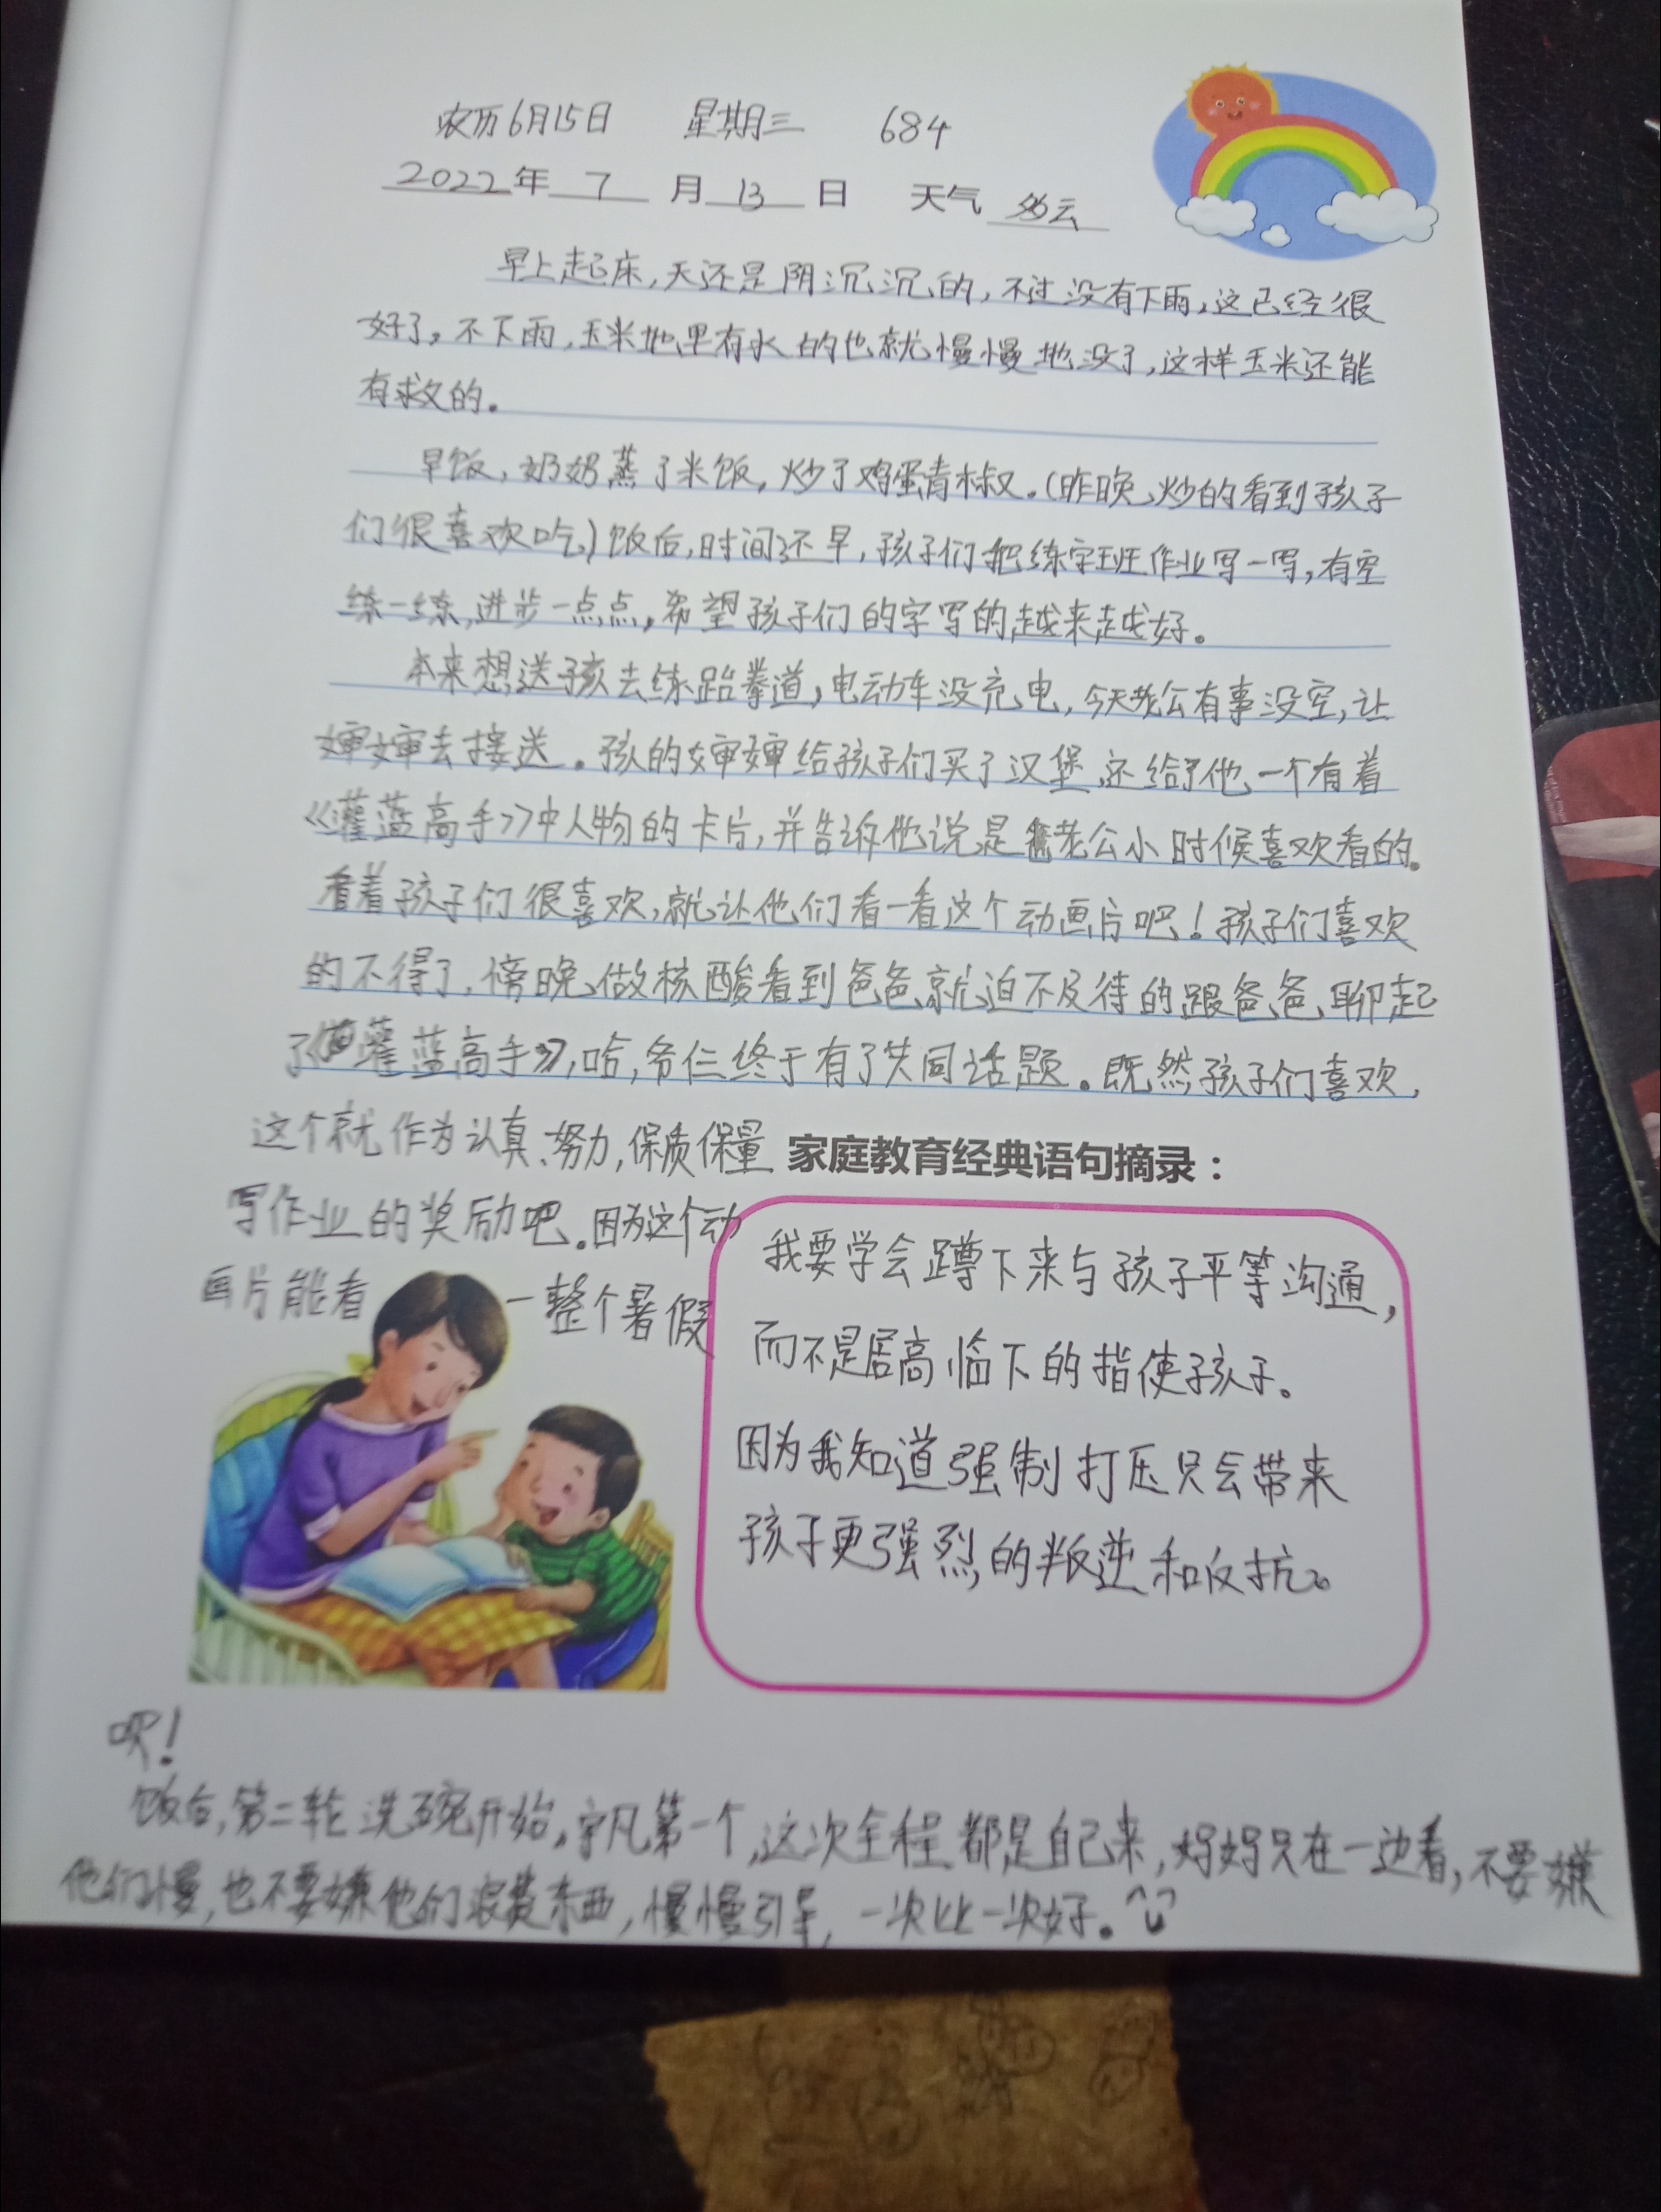 农历6月15日 星期三 684
2022年 7 月 13 日 天气 多云
早上起床,天还是阴沉沉的,不过没有下雨,这已经很
好了。不下雨,玉米地里有水的也就慢慢地没了,这样玉米还能
有救的。
早饭,奶奶蒸了米饭,炒了鸡蛋青椒。(昨晚炒的看到孩子
们很喜欢吃)饭后,时间还早,孩子们把练字班作业写一写,有空
练一练,进步一点点,希望孩子们的字写的越来越好。
本来想送孩去练跆拳道,电动车没充电,今天老公有事没空,让
婶婶去接送。孩的婶婶给孩子们买了汉堡,还给了他一个有着
《灌蓝高手》中人物的卡片,并告诉他说是老公小时候喜欢看的。
看着孩子们很喜欢,就让他们看一看这个动画片吧!孩子们喜欢
的不得了,傍晚做核酸看到爸爸就迫不及待的跟爸爸聊起
了《灌蓝高手》,哈,爷仨终于有了共同话题。既然孩子们喜欢,
这个就作为认真、努力,保质保量
写作业的奖励吧。因为这个动
画片能看一整个暑假
家庭教育经典语句摘录:
我要学会蹲下来与孩子平等沟通,
而不是居高临下的指使孩子。
因为我知道强制打压只会带来
孩子更强烈的叛逆和反抗。
呗!
饭后,第二轮洗碗开始,宇凡第一个,这次全程都是自己来,妈妈只在一边看,不要嫌
他们慢,也不要嫌他们浪费东西,慢慢引导,一次比一次好。